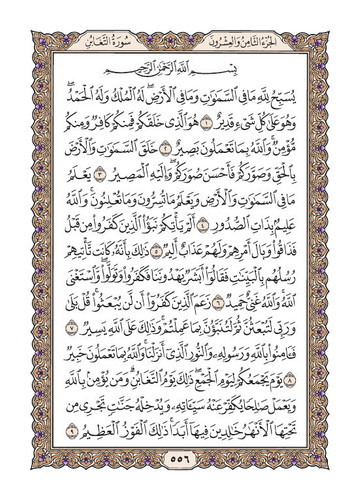 الجزء الثامن والعشرون سورة التغابن
بِسْمِ اللَّهِ الرَّحْمَٰنِ الرَّحِيمِ
يُسَبِّحُ لِلَّهِ مَا فِي السَّمَٰوَٰتِ وَمَا فِي الْأَرْضِ ۖ لَهُ الْمُلْكُ وَلَهُ الْحَمْدُ ۖ
وَهُوَ عَلَىٰ كُلِّ شَيْءٍ قَدِيرٌ ١ هُوَ الَّذِي خَلَقَكُمْ فَمِنكُمْ كَافِرٌ وَمِنكُم
مُّؤْمِنٌ ۚ وَاللَّهُ بِمَا تَعْمَلُونَ بَصِيرٌ ٢ خَلَقَ السَّمَٰوَٰتِ وَالْأَرْضَ
بِالْحَقِّ وَصَوَّرَكُمْ فَأَحْسَنَ صُوَرَكُمْ ۖ وَإِلَيْهِ الْمَصِيرُ ٣ يَعْلَمُ
مَا فِي السَّمَٰوَٰتِ وَالْأَرْضِ وَيَعْلَمُ مَا تُسِرُّونَ وَمَا تُعْلِنُونَ ۚ وَاللَّهُ
عَلِيمٌ بِذَاتِ الصُّدُورِ ٤ أَلَمْ يَأْتِكُمْ نَبَؤُا الَّذِينَ كَفَرُوا مِن قَبْلُ
فَذَاقُوا وَبَالَ أَمْرِهِمْ وَلَهُمْ عَذَابٌ أَلِيمٌ ٥ ذَٰلِكَ بِأَنَّهُ كَانَت تَّأْتِيهِمْ
رُسُلُهُم بِالْبَيِّنَٰتِ فَقَالُوا أَبَشَرٌ يَهْدُونَنَا فَكَفَرُوا وَتَوَلَّوا ۚ وَّاسْتَغْنَى
اللَّهُ ۚ وَاللَّهُ غَنِيٌّ حَمِيدٌ ٦ زَعَمَ الَّذِينَ كَفَرُوا أَن لَّن يُبْعَثُوا ۚ قُلْ بَلَىٰ
وَرَبِّي لَتُبْعَثُنَّ ثُمَّ لَتُنَبَّؤُنَّ بِمَا عَمِلْتُمْ ۚ وَذَٰلِكَ عَلَى اللَّهِ يَسِيرٌ ٧
فَـَٔامِنُوا بِاللَّهِ وَرَسُولِهِ وَالنُّورِ الَّذِي أَنزَلْنَا ۚ وَاللَّهُ بِمَا تَعْمَلُونَ خَبِيرٌ
٨ يَوْمَ يَجْمَعُكُمْ لِيَوْمِ الْجَمْعِ ۖ ذَٰلِكَ يَوْمُ التَّغَابُنِ ۗ وَمَن يُؤْمِنۢ بِاللَّهِ
وَيَعْمَلْ صَٰلِحًا يُكَفِّرْ عَنْهُ سَيِّـَٔاتِهِ وَيُدْخِلْهُ جَنَّٰتٍ تَجْرِي مِن
تَحْتِهَا الْأَنْهَٰرُ خَٰلِدِينَ فِيهَا أَبَدًا ۚ ذَٰلِكَ الْفَوْزُ الْعَظِيمُ ٩
٥٥٦